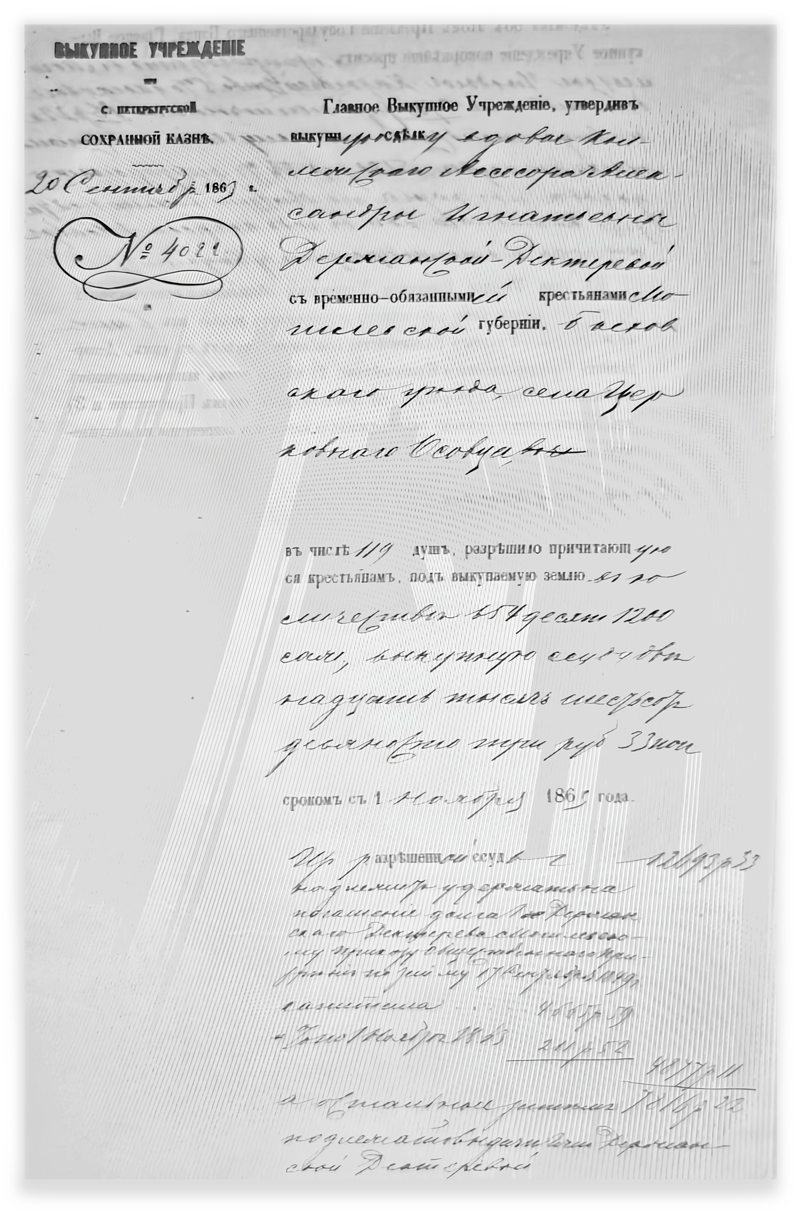 ВЫКУПНОЕ УЧРЕЖДЕНІЕ
С. ПЕТЕРБУРГСКОЙ
СОХРАННОЙ КАЗНѢ.
20 Сентября 1863 г.
№ 4022
Главное Выкупное Учрежденіе, утвердивъ
выкупную сдѣлку вдовы Кол-
лежскаго Ассесора Алек-
сандры Игнатьевны
Держанской-Дехтеревой
съ временно-обязанными ей крестьянами Мо-
гилевской губерніи, Быхов
скаго уѣзда, села Цер
ковнаго Осовца,
въ числѣ 119 душъ, разрѣшило причитающую
ся крестьянамъ, подъ выкупаемую землю въ ко
личествѣ 654 десят 1200
саж, выкупную ссуду двѣ
надцать тысячъ шестьсотъ
девяносто три руб 33 коп
срокомъ съ 1 Ноября 1863 года.
Изъ разрѣшенной ссуды 12693 р 33
подлежитъ удержать на
погашеніе долга Держан
скаго Дехтерева Могилевско-
му Приказу Общественнаго При-
зрѣнія по займу 17 Сентября 1849 г
капитала 4665 р 59
% по 1 Ноября 1863 211 р 52
4877 р 11
а остальные затѣмъ 7816 р 22
подлежатъ выдачи Держан-
ской Дехтеревой